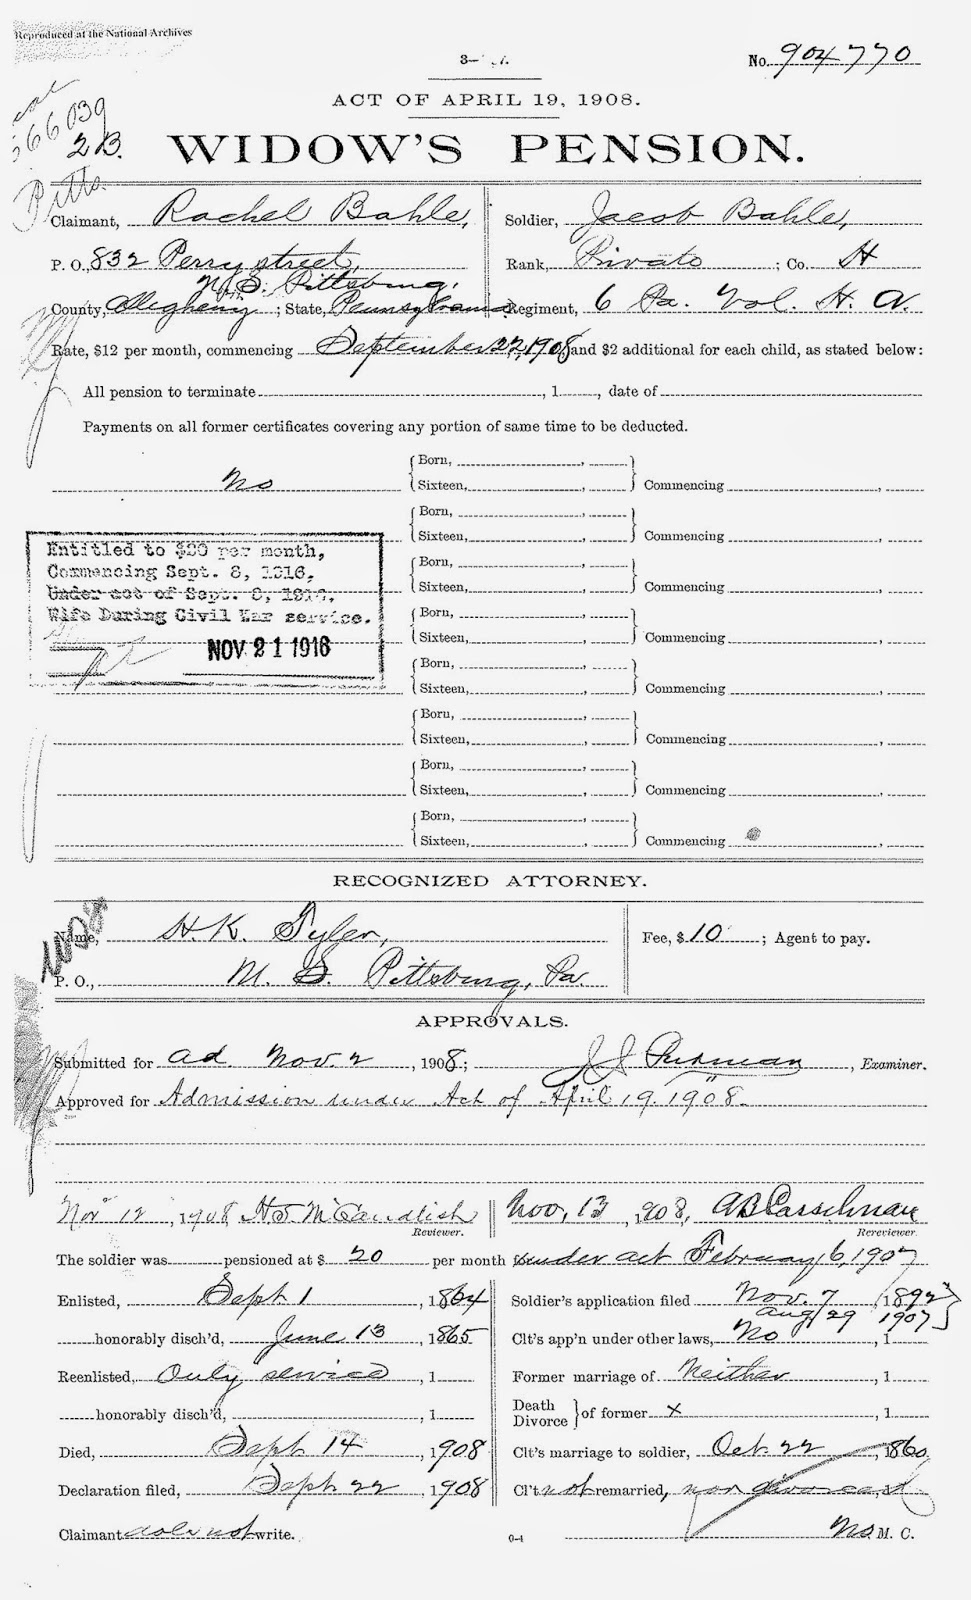 Reproduced at the National Archives
3—
No. 904770
ACT OF APRIL 19, 1908.
566039
2B.
WIDOW'S PENSION.
Pitts.
Claimant, Rachel Bahle,
Soldier, Jacob Bahle,
P. O. 832 Perry street,
Rank, Private ; Co. H
N. S. Pittsburg,
County, Allegheny ; State, Pennsylvania
Regiment, 6 Pa. Vol. H. A.
Rate, $12 per month, commencing September 22, 1908, and $2 additional for each child, as stated below:
All pension to terminate , 1 , date of
Payments on all former certificates covering any portion of same time to be deducted.
No
Born, ,
Sixteen, , Commencing ,
Born, ,
Sixteen, , Commencing ,
Entitled to $20 per month,
Commencing Sept. 8, 1916,
Under act of Sept. 8, 1916,
Wife During Civil War service.
NOV 21 1916
Born, ,
Sixteen, , Commencing ,
Born, ,
Sixteen, , Commencing ,
Born, ,
Sixteen, , Commencing ,
Born, ,
Sixteen, , Commencing ,
Born, ,
Sixteen, , Commencing ,
Born, ,
Sixteen, , Commencing ,
RECOGNIZED ATTORNEY.
Name, H. K. Tyler,
Fee, $10 ; Agent to pay.
P. O., Pittsburg, Pa.
APPROVALS.
Submitted for ad. Nov. 2 , 1908; , Examiner.
Approved for Admission under Act of April 19, 1908.
Nov 12 , 1908
Reviewer.
Nov, 13 , 1908,
Rereviewer.
The soldier was pensioned at $ 20 per month under act February 6, 1907
Enlisted, Sept 1 , 1864
Soldier's application filed Nov. 7 1892
Aug 29 1907
honorably disch'd, June 13 , 1865
Clt's app'n under other laws, No , 1
Reenlisted, Only service , 1
Former marriage of Neither , 1
honorably disch'd, , 1
Death
Divorce } of former x , 1
Died, Sept 14 , 1908
Clt's marriage to soldier, Oct. 22 , 1860,
Declaration filed, Sept 22 , 1908
Cl't not remarried, nor divorced
Claimant does not write.
0-4
No M. C.